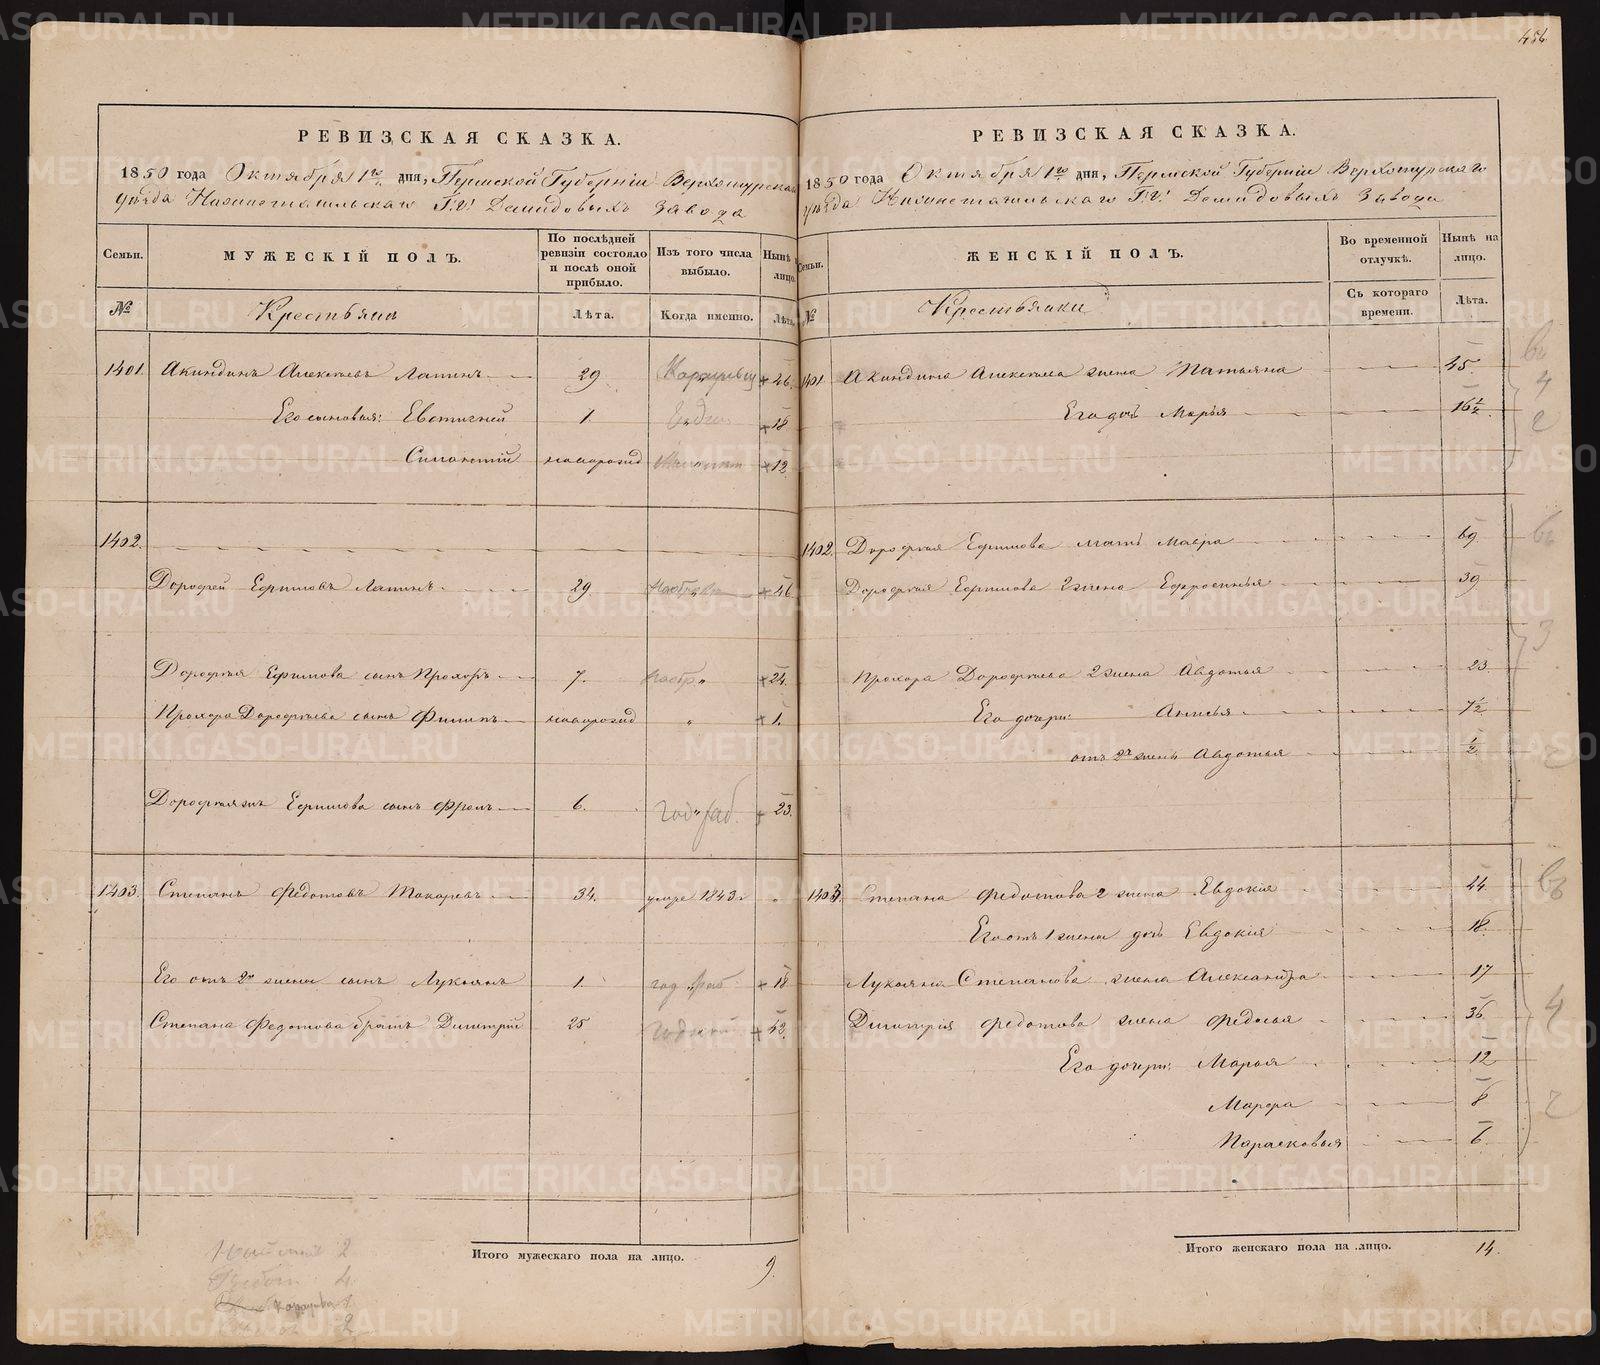 456
РЕВИЗСКАЯ СКАЗКА.
1850 года Октября 1го дня, Пермской Губерніи Верхотурскаго
уѣзда Нижнетагильскаго Г.г. Демидовыхъ завода
Семьи. МУЖЕСКІЙ ПОЛЪ. По послѣдней ревизіи состояло и послѣ оной прибыло. Изъ того числа выбыло. Нынѣ лицо.
№ Крестьяне Лѣта. Когда именно. Лѣта.
1401. Акиндинъ Алексѣевъ Лапинъ 29 46
Его сыновья: Евстигней 1. 18
новорожд 12
1402.
Дорофей Ефимовъ Лапинъ 29. 46
Дорофея Ефимова сынъ Прохоръ 7. 24.
Прохора Дорофѣева сынъ Филипъ новорожд " 1.
Ефимова сынъ Фролъ 6. 23.
1403. Степанъ Федотовъ Токаревъ 34. умре 1843 г "
Его отъ 2й жены сынъ Лукьянъ 1. 18
Степана Федотова братъ Димитрій 25 42
Итого мужескаго пола на лицо. 9.
РЕВИЗСКАЯ СКАЗКА.
1850 года Октября 1го дня, Пермской Губерніи Верхотурскаго
уѣзда Нижнетагильскаго Г.г. Демидовыхъ завода
Семьи. ЖЕНСКІЙ ПОЛЪ. Во временной отлучкѣ. Нынѣ на лицо.
№ Крестьянки Съ котораго времени. Лѣта.
1401 Акиндина Алексѣева жена Татьяна 45.
Его дочь Марья 16½.
1402. Дорофея Ефимова мать Мавра 69
Дорофея Ефимова 2 жена Ефросинья 39
Прохора Дорофѣева 2 жена Авдотья 23
Его дочери: Анисья 7½
отъ 2й жены Авдотья ½
1403. Степана Федотова 2 жена Евдокия 44.
Его отъ 1 жены дочь Евдокия 18.
Лукьяна Степанова жена Александра 17
Димитрія Федотова жена Федосья 36
Его дочери: Марья 12
Марфа 8
Парасковья 6.
Итого женскаго пола на лицо. 14.
METRIKI.GASO-URAL.RU